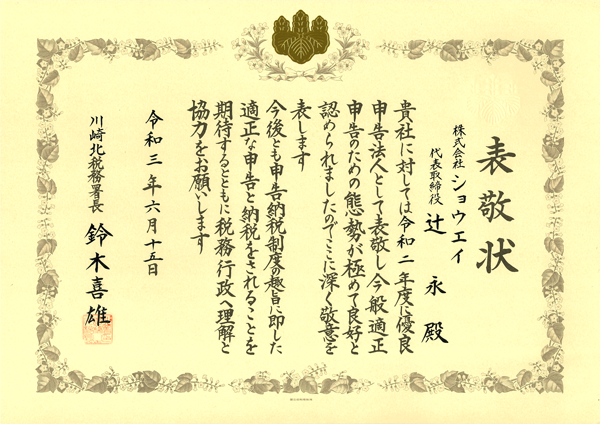 表敬状
株式会社 ショウエイ
代表取締役 辻 永 殿
貴社に対しては令和二年度に優良
申告法人として表敬し今般適正
申告のための態勢が極めて良好と
認められましたのでここに深く敬意を
表します
今後とも申告納税制度の趣旨に即した
適正な申告と納税をされることを
期待するとともに税務行政へ理解と
協力をお願いします
令和三年六月十五日
川崎北税務署長 鈴木喜雄